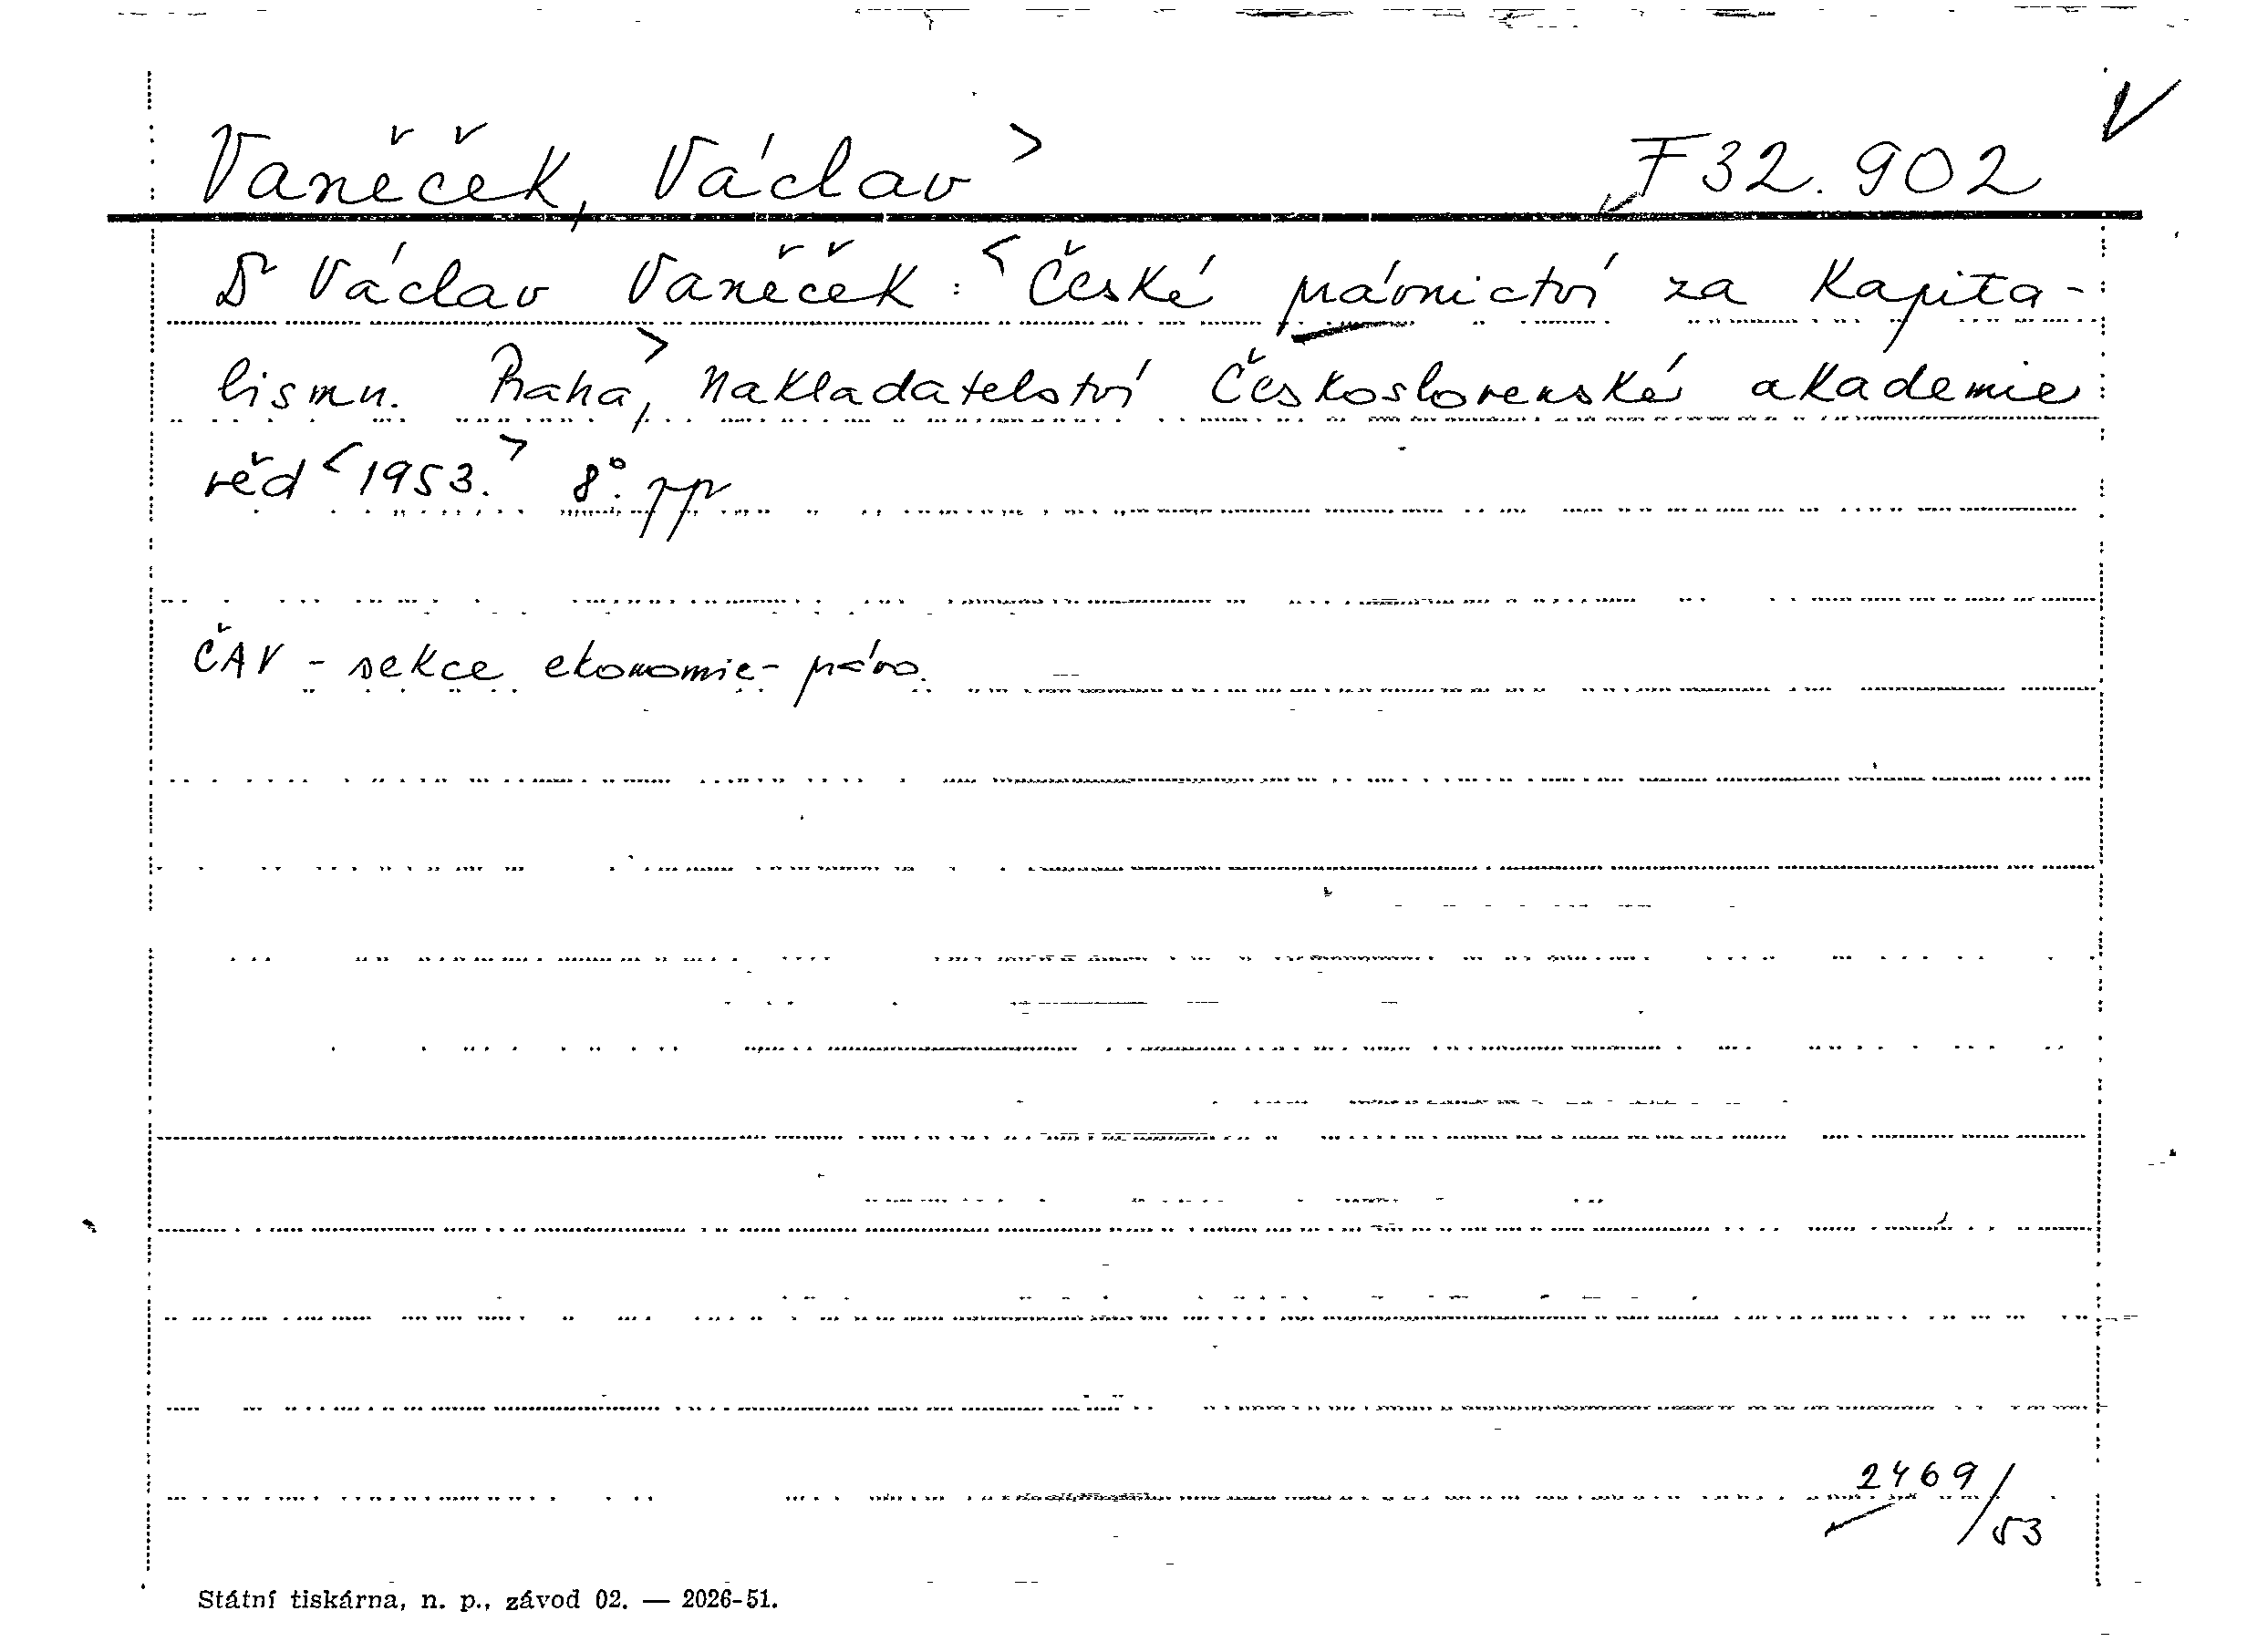 Vaněček, Václav > F 32.902 V
Dr Václav Vaněček : < České právnictví za kapita-
lismu. Praha, > Nakladatelství Československé akademie
věd < 1953. > 8°. pp
ČAV - sekce ekonomie - právo.
2469/53
Státní tiskárna, n. p., závod 02. — 2026-51.